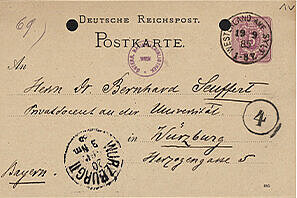 69)
DEUTSCHE REICHSPOST.
POSTKARTE.
An
Herrn Dr. Bernhard Seuffert
Privatdocent an der Universität
in Würzburg
Herzogengasse 5
Bayern.
4
WÜRZBURG II